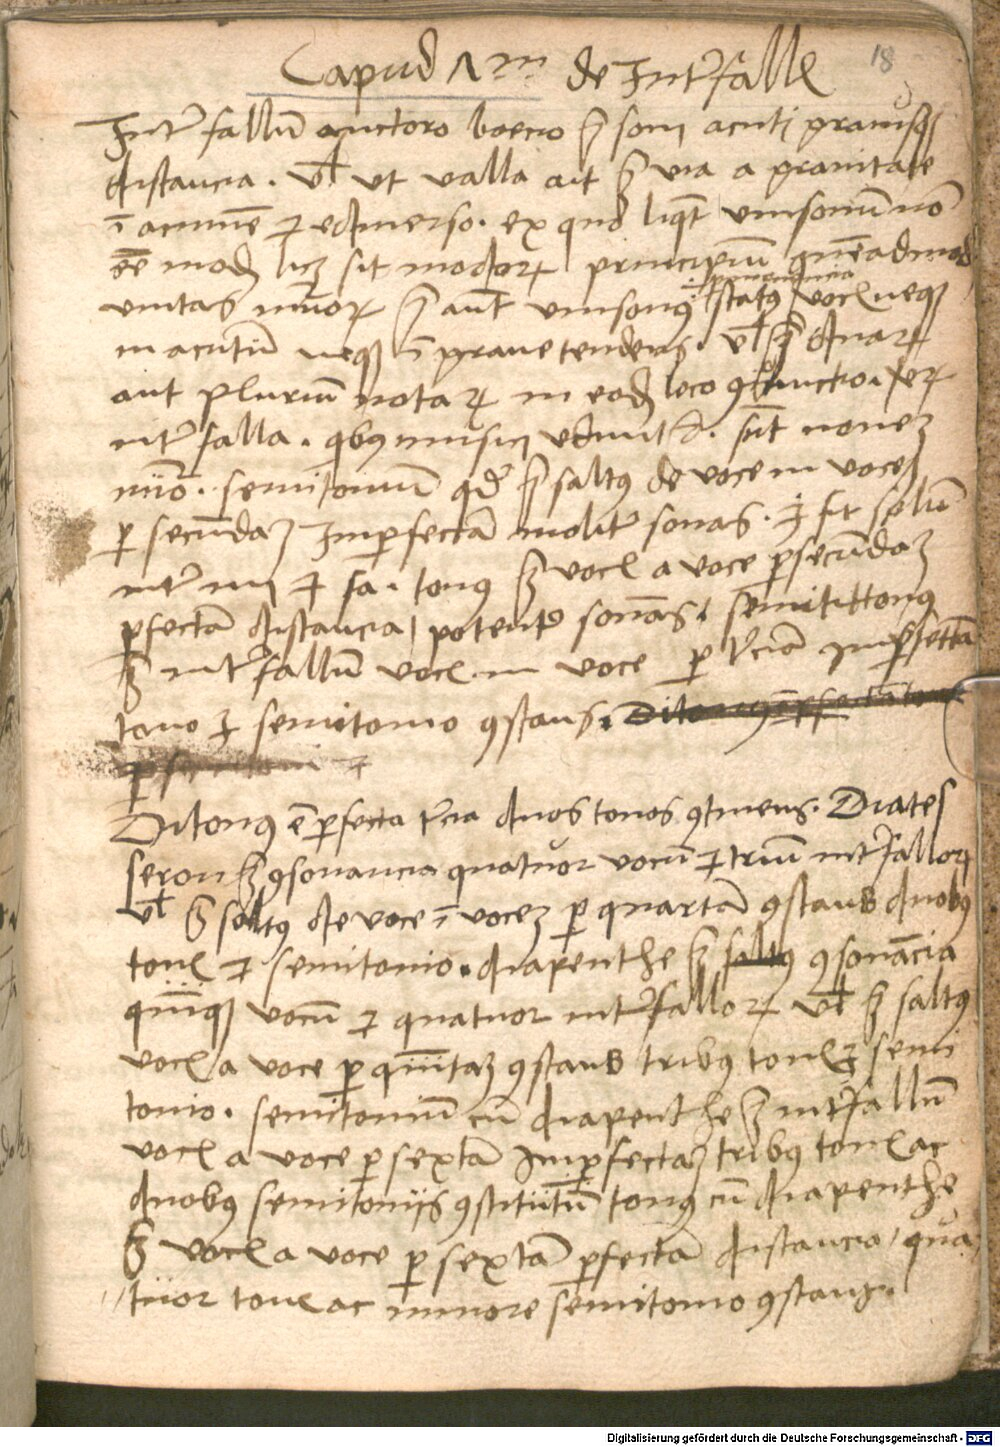 Capud 1m de Intervallis
18
Intervallum auctore boecio est soni acuti gravisque
distancia. vel ut valla ait est via a gravitate
in acumen et edmerso. ex quo liquet unisonum non
esse modum licet sit modorum principium quemadmod
unitas numerorum est autem unisonus status vocis neque
pronunciacio
in acutum neque in grave tendens. vel est duarum
aut plurium notarum in eodem loco conjunctio.
intervalla. quibus musici utuntur. sunt novem
numero. semitonium quod est saltus de voce in vocem
per secundam Imperfectam moliter sonans. et fit solum
inter mi et fa. tonus est vocis a voce per secundam
perfectam distancia potenter sonans. semidittonus
est intervallum vocis in voce per terciam imperfectam
tono et semitonio constans. Ditonus
Ditonus est perfecta tercia duos tonos continens. Diates
seron est consonancia quatuor vocum et trium intervallorum
vel est saltus de voce in vocem per quartam constans duobus
tonis et semitonio. diapenthe est saltus consonancia
quinque vocum et quatuor intervallorum vel est saltus
vocis a voce per quintam constans tribus tonis et semi
tonio. semitonium cum diapenthe est intervallum
vocis a voce per sextam Imperfectam tribus tonis ac
duobus semitoniis constitutum tonus cum diapenthe
est vocis a voce per sextam perfectam distancia qua
tuor tonis ac minore semitonio constans.
Digitalisierung gefördert durch die Deutsche Forschungsgemeinschaft - DFG